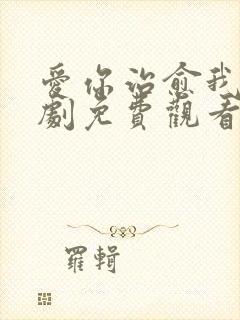 愛你治愈我
劇免費觀看
羅輯